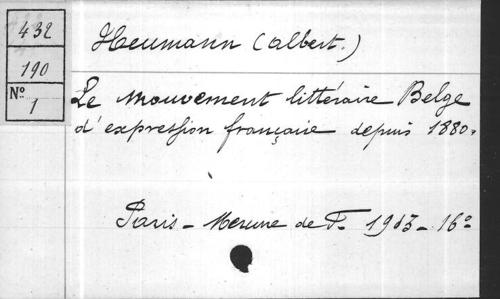 432
190
Nº 1
Heumann (Albert.)
Le mouvement littéraire Belge
d'expression française depuis 1880.
Paris - Mercure de F. 1913 - 16º